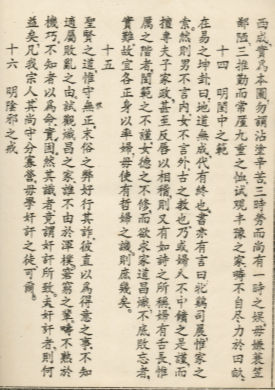 西成實爲本圖勿謂沾塗辛苦三時勞而尚有一時之娱毋嫌蓑笠
鄙陋三推勤而常厪九重之恤試观丰豫之家疇不自尽力於田畝
十四 明閨中之範
在易之坤卦曰地道無成代有終也書亦有言曰牝鷄司晨惟家之
索然則男不言内女不言外古之教也乃或婦人不中饋之是謹而
擅專夫子家政甚至反唇以相稽則又有如詩之所稱婦有舌長惟
厲之階者閨範之不謹女德之不修而欲求家道昌熾不底敗忘者
實難故宜各正身以率婦毋使有哲婦之譏則庶幾矣
十五
聖賢之道惟守無正末俗之弊好行其詐彼直以爲得意之事不知
適属敗乱之由試觀熾昌之家誰不由於渾樸窘窮之輩疇不熟於
機巧不知者以爲命實固然其識者竟謂奸計所致夫奸計者則何
益矣凡我宗人其尚守分寡營毋學奸計之徒可爾
十六 明陰邪之戒